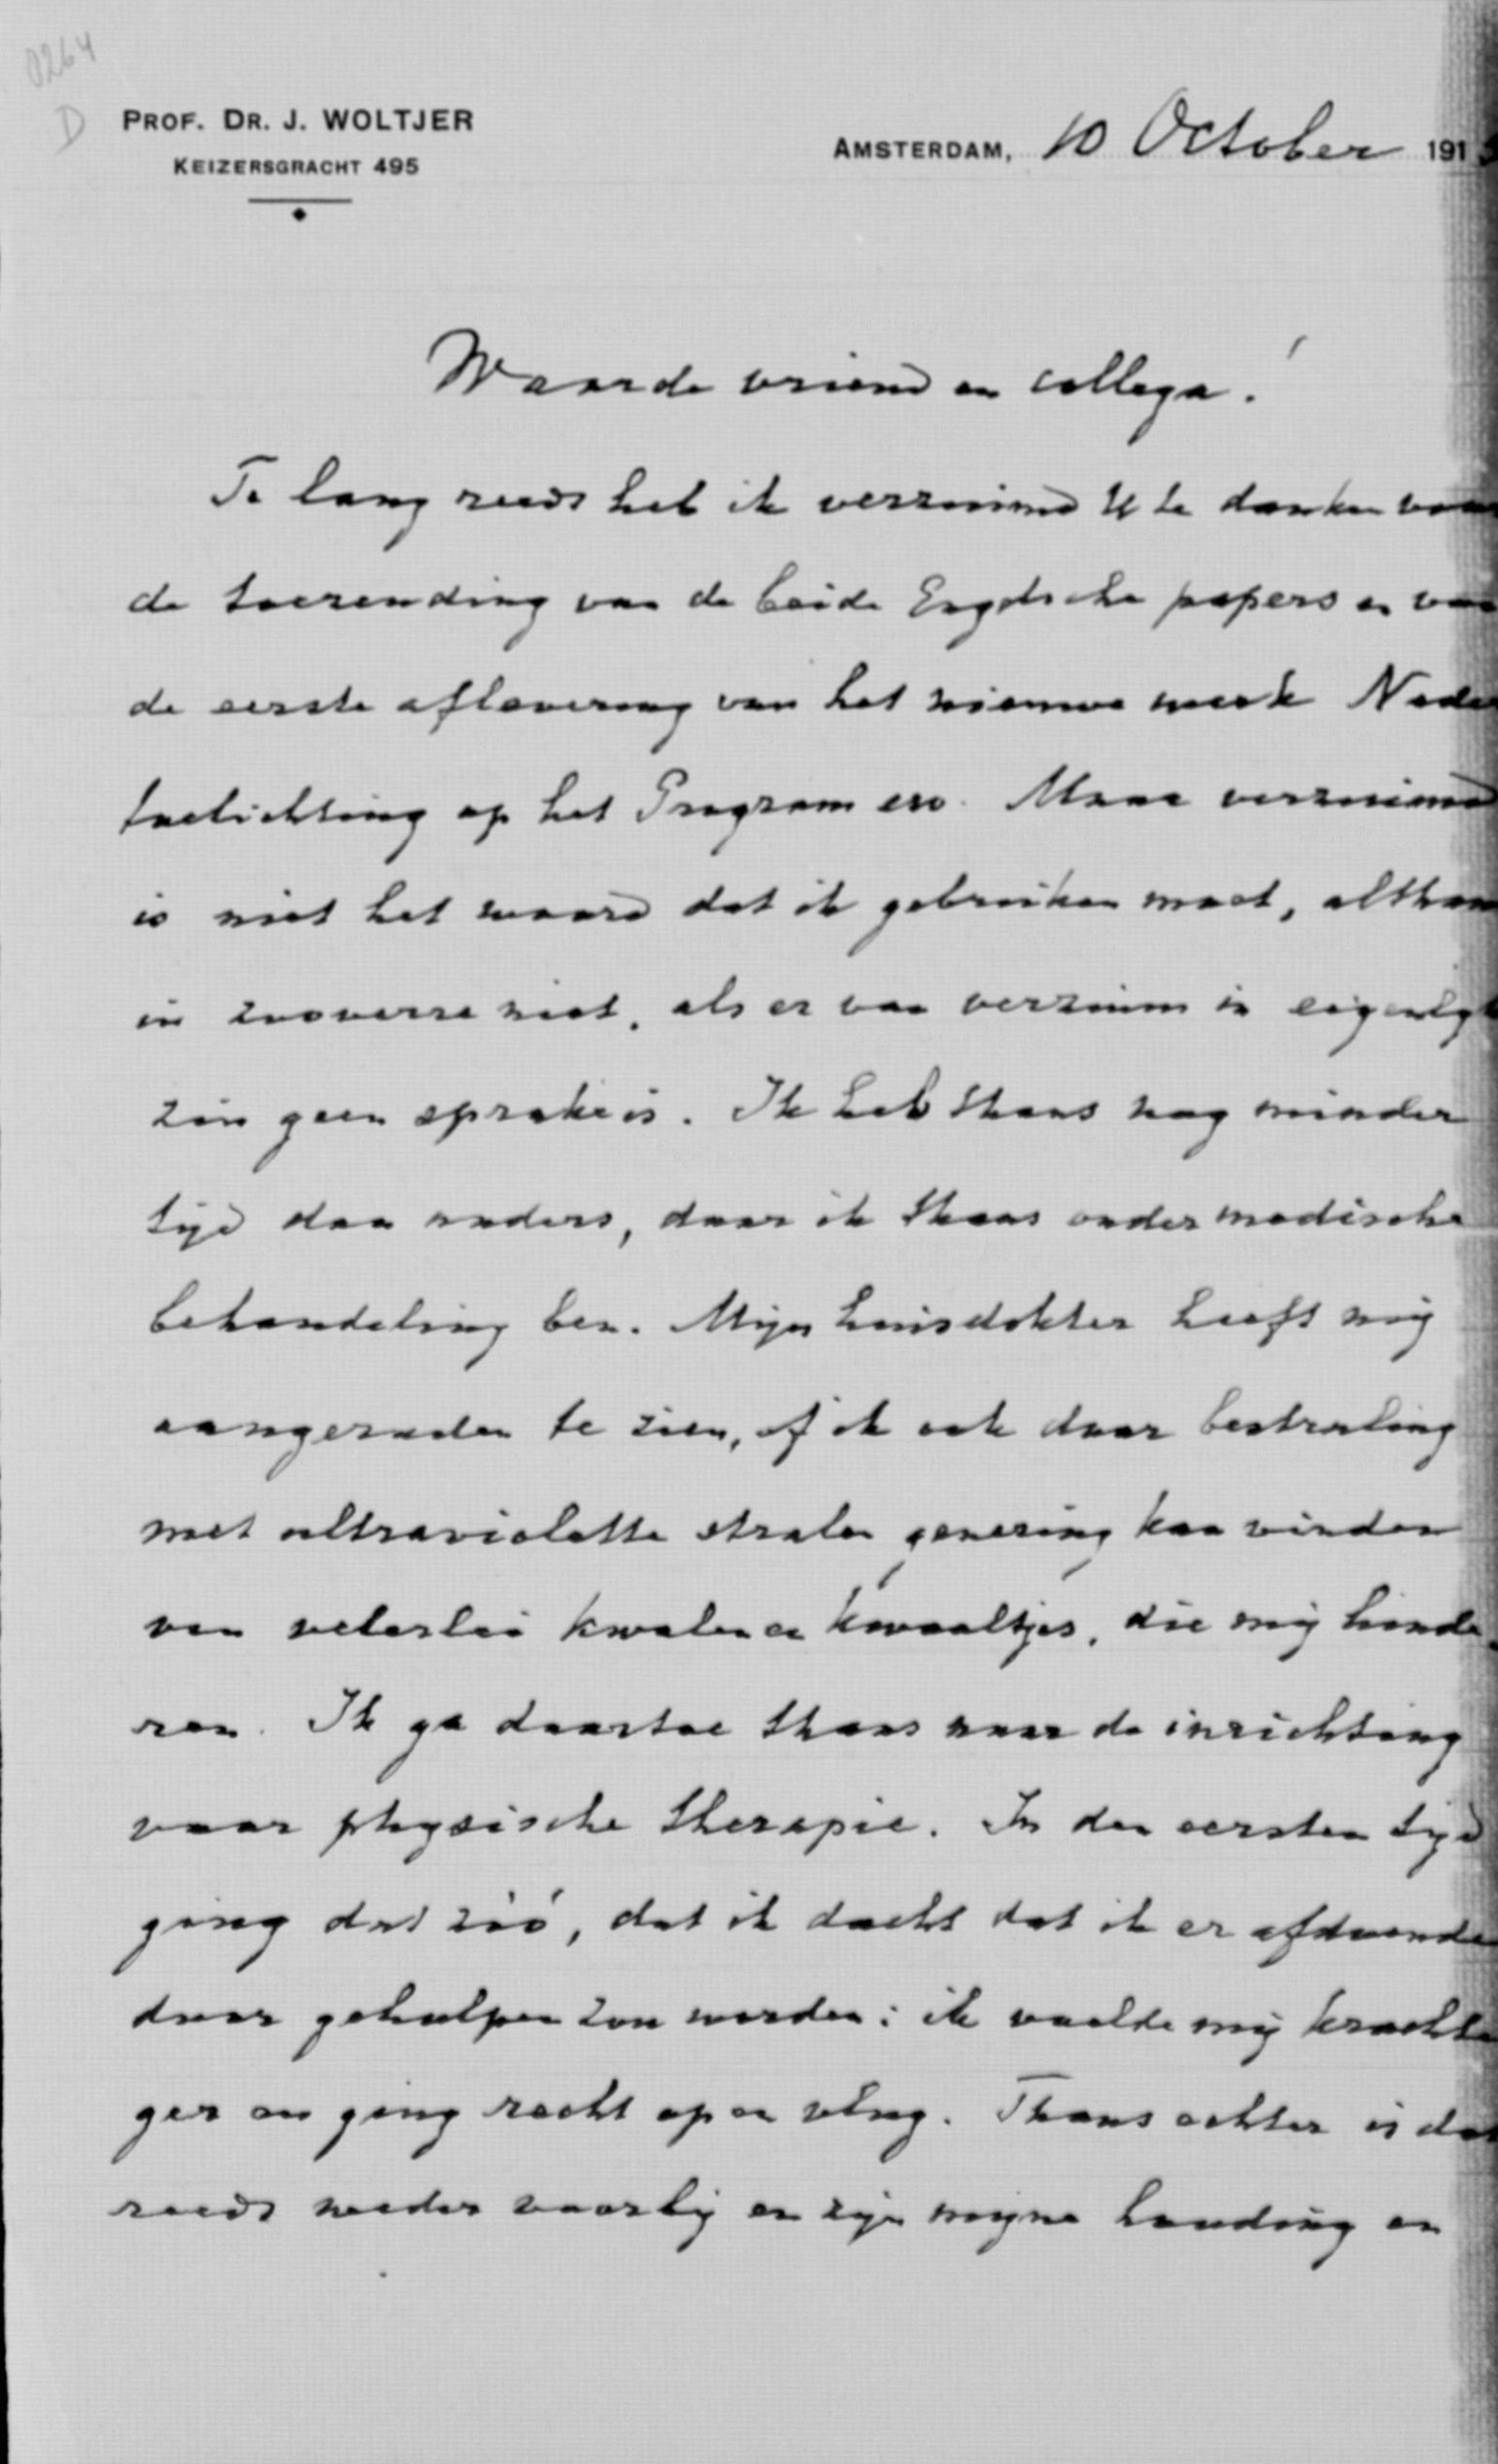 0264
D
PROF. DR. J. WOLTJER
KEIZERSGRACHT 495
AMSTERDAM, 10 October 191
Waarde vriend en collega!
Te lang reeds heb ik verzuimd U te danken voor
de toezending van de beide Engelsche papers en van
de eerste aflevering van het nieuwe werk Nadere
toelichting op het Program enz. Maar verzuimd
is niet het woord dat ik gebruiken moet, althans
in zooverre niet, als er van verzuim in eigenlyk
zin geen sprake is. Ik heb thans nog minder
tijd dan anders, daar ik thans onder medische
behandeling ben. Mijn huisdokter heeft mij
aangeraden te zien, of ik ook door bestraling
met ultraviolette stralen genezing kan vinden
van velerlei kwalen en kwaaltjes, die mij hinde-
ren. Ik ga daartoe thans naar de inrichting
voor physische therapie. In den eersten tijd
ging dat zóó, dat ik dacht dat ik er afdoende
door geholpen zou worden: ik voelde mij krachti
ger en ging recht op en vlug. Thans echter is dat
reeds weder voorbij en zijn mijne houding en